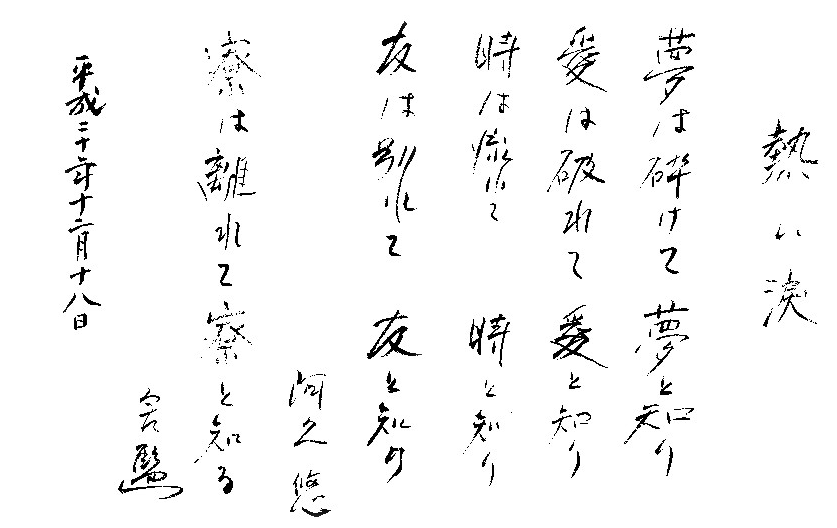 熱い涙
夢は砕けて 夢と知り
愛は破れて 愛と知り
時は流れて 時と知り
友は別れて 友と知り
阿久悠
寮は離れて 寮と知る
平成二十年十二月十八日